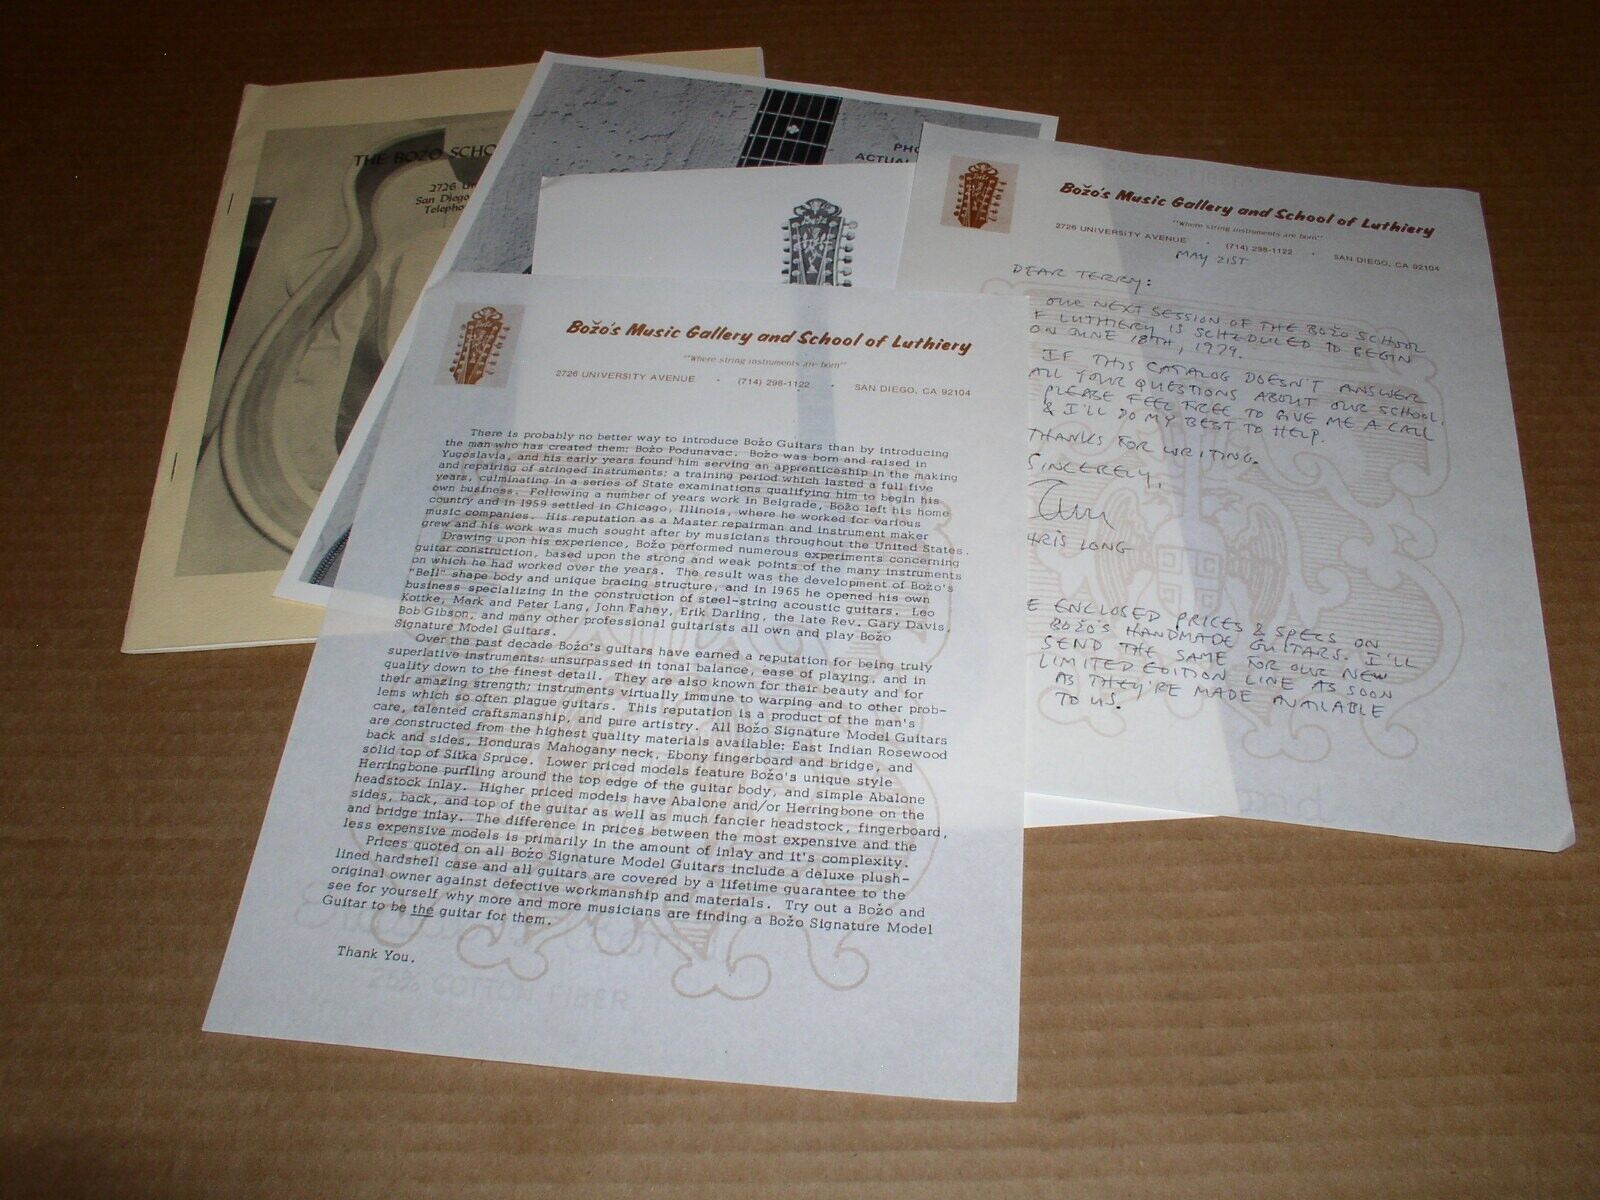 THE BOZO SCHO
2726 U
San Diego
Telepho
PHO
ACTUAL
Božo
Božo's Music Gallery and School of Luthiery
"Where string instruments are born"
2726 UNIVERSITY AVENUE • (714) 298-1122 • SAN DIEGO, CA 92104
MAY 21ST
DEAR TERRY:
OUR NEXT SESSION OF THE BOŽO SCHOOL
F LUTHIERY IS SCHEDULED TO BEGIN
ON JUNE 18TH, 1979.
IF THIS CATALOG DOESN'T ANSWER
ALL YOUR QUESTIONS ABOUT OUR SCHOOL,
PLEASE FEEL FREE TO GIVE ME A CALL
& I'LL DO MY BEST TO HELP.
THANKS FOR WRITING.
SINCERELY,
HRIS LONG
E ENCLOSED PRICES & SPECS ON
BOŽO'S HANDMADE GUITARS. I'LL
SEND THE SAME FOR OUR NEW
LIMITED EDITION LINE AS SOON
AS THEY'RE MADE AVAILABLE
TO US.
Božo's Music Gallery and School of Luthiery
"Where string instruments are born"
2726 UNIVERSITY AVENUE • (714) 298-1122 • SAN DIEGO, CA 92104
There is probably no better way to introduce Božo Guitars than by introducing
the man who has created them; Božo Podunavac. Božo was born and raised in
Yugoslavia, and his early years found him serving an apprenticeship in the making
and repairing of stringed instruments; a training period which lasted a full five
years, culminating in a series of State examinations qualifying him to begin his
own business. Following a number of years work in Belgrade, Božo left his home
country and in 1959 settled in Chicago, Illinois, where he worked for various
music companies. His reputation as a Master repairman and instrument maker
grew and his work was much sought after by musicians throughout the United States.
Drawing upon his experience, Božo performed numerous experiments concerning
guitar construction, based upon the strong and weak points of the many instruments
on which he had worked over the years. The result was the development of Božo's
"Bell" shape body and unique bracing structure, and in 1965 he opened his own
business specializing in the construction of steel-string acoustic guitars. Leo
Kottke, Mark and Peter Lang, John Fahey, Erik Darling, the late Rev. Gary Davis,
Bob Gibson, and many other professional guitarists all own and play Božo
Signature Model Guitars.
Over the past decade Božo's guitars have earned a reputation for being truly
superlative instruments; unsurpassed in tonal balance, ease of playing, and in
quality down to the finest detail. They are also known for their beauty and for
their amazing strength; instruments virtually immune to warping and to other prob-
lems which so often plague guitars. This reputation is a product of the man's
care, talented craftsmanship, and pure artistry. All Božo Signature Model Guitars
are constructed from the highest quality materials available: East Indian Rosewood
back and sides, Honduras Mahogany neck, Ebony fingerboard and bridge, and
solid top of Sitka Spruce. Lower priced models feature Božo's unique style
Herringbone purfling around the top edge of the guitar body, and simple Abalone
headstock inlay. Higher priced models have Abalone and/or Herringbone on the
sides, back, and top of the guitar as well as much fancier headstock, fingerboard,
and bridge inlay. The difference in prices between the most expensive and the
less expensive models is primarily in the amount of inlay and it's complexity.
Prices quoted on all Božo Signature Model Guitars include a deluxe plush-
lined hardshell case and all guitars are covered by a lifetime guarantee to the
original owner against defective workmanship and materials. Try out a Božo and
see for yourself why more and more musicians are finding a Božo Signature Model
Guitar to be the guitar for them.
Thank You.
25% COTTON FIBER